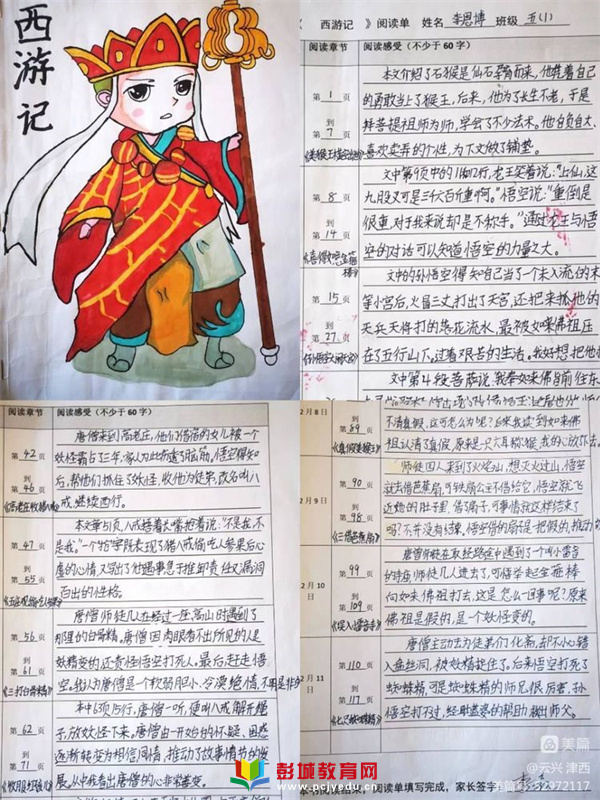 西游记
西游记 》阅读单 姓名 李恩博 班级 五(1)
阅读章节 阅读感受(不少于60字)
第 1 页
到
第 7 页
本文介绍了石猴是仙石孕育而来,他凭着自己
的勇敢当上了猴王,后来,他为了长生不老,于是
拜菩提祖师为师,学会了不少法术。他自负自大、
喜欢卖弄的个性,为下文做了铺垫。
第 8 页
到
第 14 页
文中第9页中的
龙王笑着说:“上仙,这
九股叉可是三千六百斤重啊。”悟空说:“重倒是
很重,对于我来说却是不称手。”通过龙王与悟
空的对话可以知道悟空的力量之大。
第 15 页
到
第 27 页
文中的孙悟空得知自己当了个未入流的末
等小官后,火冒三丈打出了天宫,还把来抓他的
天兵天将打的落花流水,最被如来佛祖压
在了五行山下,过着艰苦的生活。我好想把他
文中第4段菩萨说,我奉如来佛旨前往东
阅读章节 阅读感受(不少于60字)
第 42 页
到
第 46 页
唐僧来到高老庄,他们得知高的女儿被一个
妖怪霸占了三年,家人为此伤透了脑筋。悟空得知
后,帮他们抓住了妖怪,收他为徒弟,改名叫八
戒,继续西行。
第 47 页
到
第 55 页
本文章与页八戒捂着大嘴抢着说:“不是我,不
是我。”一个“抢”字既表现了猪八戒偷吃人参果后心
虚的心情又突出了他遇事急于推卸责任又漏洞
百出的性格。
第 56 页
到
第 61 页
《三打白骨精》
唐僧师徒几人在经过一座高山时遇到了
那里的白骨精。唐僧因肉眼看不出所见的人是
妖精变的还责怪悟空打死人。最后赶走悟
空。我认为唐僧是一个软弱胆小、冷漠绝情、不明是非
第 62 页
到
第 71 页
本中6页15行,唐僧一听,便叫八戒解开绳
子,放妖怪下来,唐僧由一开始的怀疑、困惑
逐渐转变为相信同情,推动了故事情节的发
展。从中我看出唐僧的心非常善变。
2月8日
到
89 页
《真假美猴王》
不清真假,这可怎么办呢?后来我读到如来佛
祖认清了真假,原来是一只六耳猕猴,我的心放下去
2月9日
90 页
到
98 页
《三借芭蕉扇》
师徒四人来到了火焰山,想灭火过山,悟空
就去借芭蕉扇,可铁扇公主不借给它,悟空就飞
近她的肚子里,借了扇子,可事情就这样结束了
吗?不并没有结束,悟空借的扇是把假的,
2月10日
99 页
到
109 页
《误入小雷音寺》
唐僧师徒在取经路途中遇到了一个叫小雷音
的寺庙师徒几人进去了,可悟空举起金箍棒
向如来佛祖打去,这是怎么一回事呢?原来
佛祖是假的,是一个妖怪变的。
2月11日
110 页
到
117 页
唐僧主动去为徒弟们化斋,却不小心踏
入盘丝洞,被妖精捉住了。后来悟空打死了
蜘蛛精,可是蜘蛛精的师兄很厉害,孙
悟空打不过,经毗蓝婆的帮助救出师父。
本书阅读结束,阅读单填写完成,家长签字
彭城教育网
www.pcjyedu.com
美篇
@云兴 津西